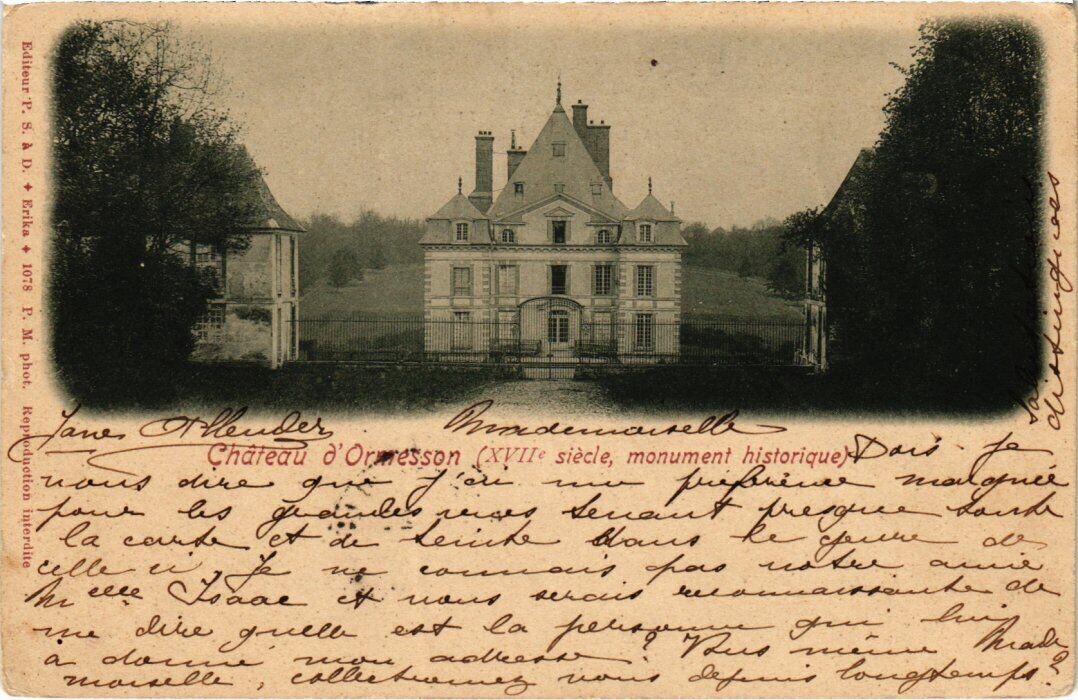 Editeur P. S. à D. ✦ Erika ✦ 1078 P. M. phot. Reproduction interdite
Château d'Ormesson (XVIIe siècle, monument historique)
Mademoiselle
Dois je
vous dire que j'ai une préférence marquée
pour les grandes vues tenant presque toute
la carte et de teinte dans le genre de
celle ci. Je ne connais pas notre amie
Melle Isaac et vous serais reconnaissante de
me dire quelle est la personne qui lui
a donné mon adresse? Vous même Made
moiselle, collectionnez vous depuis longtemps?
distinguées